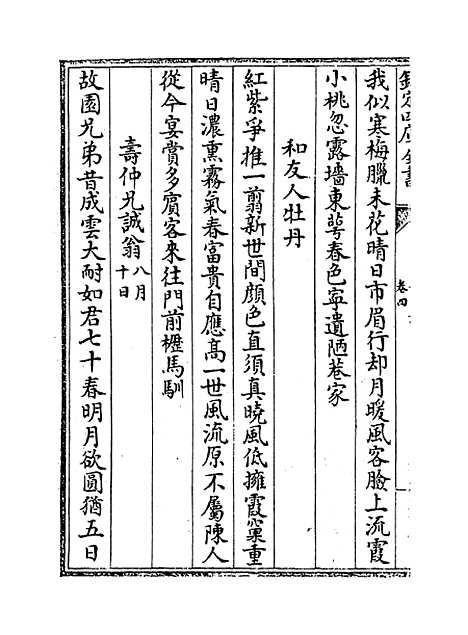 欽定四庫全書
卷四
我似寒梅臘未花晴日市眉行却月暖風客臉上流霞
小桃忽露墻東萼春色寧遺陋巷家
和友人牡丹
紅紫爭推一剪新世間顔色直須真曉風低擁霞窠重
晴日濃熏霧氣春富貴自應髙一世風流原不屬陳人
從今宴賞多賓客來往門前櫪馬馴
壽仲兄誠翁八月十日
故園兄弟昔成雲大耐如君七十春明月欲圓猶五日